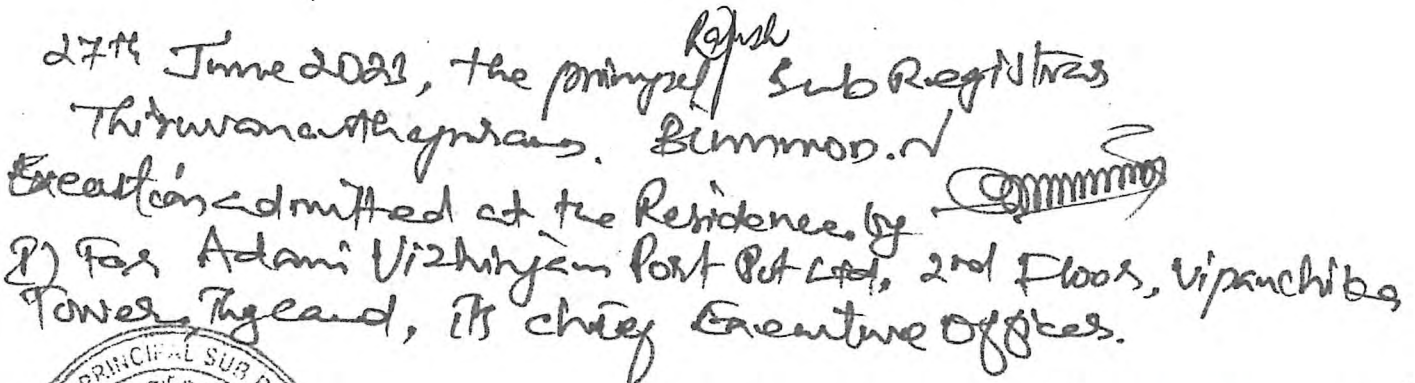 27th June 2023, the principal Sub Registrar
Thiruvananthapuram. BINUMOD.N
Execution admitted at the Residence by
1) For Adani Vizhinjam Port Pvt Ltd, 2nd Floor, Vipanchika
Tower, Thycaud, its chief Executive Officer.
PRINCIPAL SUB